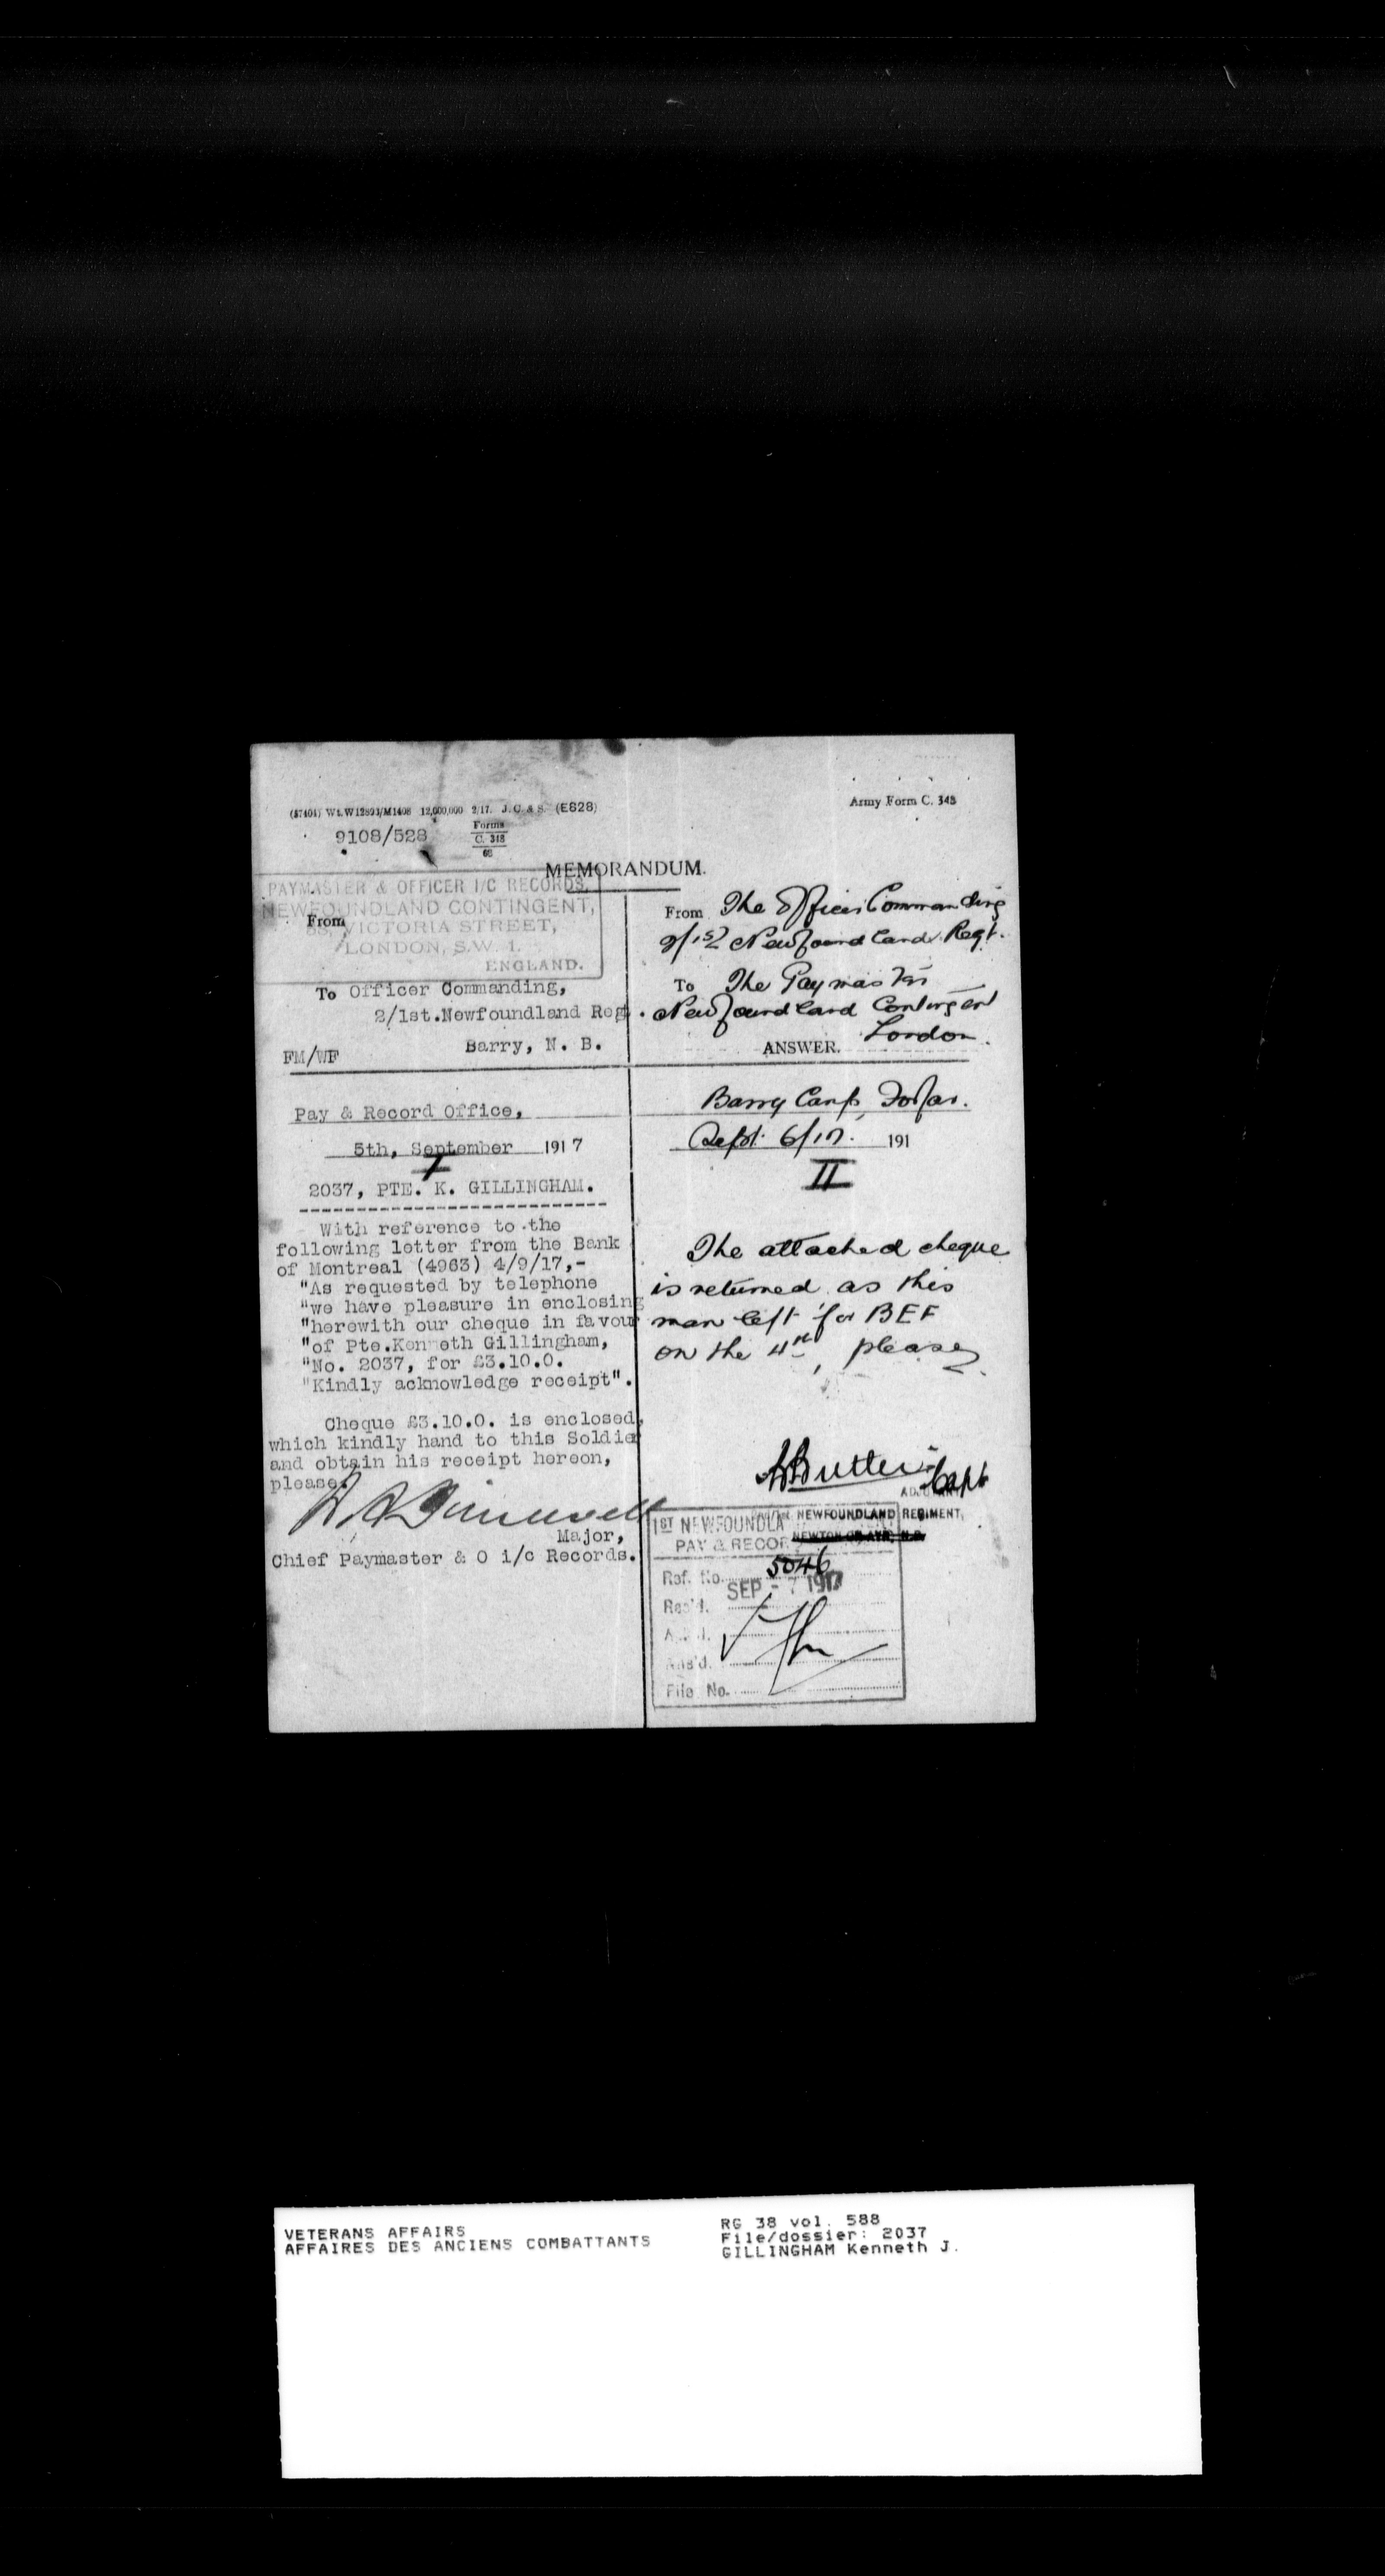 (57404) Wt. W12893/M1408 12,000,000 2/17. J. C. & S. (E828)
Army Form C. 348
9108/528
Forms
C. 348
68
MEMORANDUM.
PAYMASTER & OFFICER I/C RECORDS,
NEWFOUNDLAND CONTINGENT,
VICTORIA STREET,
LONDON, S.W. 1.
ENGLAND.
From
To Officer Commanding,
2/1st.Newfoundland Reg.
Barry, N. B.
FM/WF
Pay & Record Office,
5th, September 1917
I
2037, PTE. K. GILLINGHAM.
With reference to the
following letter from the Bank
of Montreal (4963) 4/9/17,-
"As requested by telephone
"we have pleasure in enclosing
"herewith our cheque in favour
"of Pte.Kenneth Gillingham,
"No. 2037, for £3.10.0.
"Kindly acknowledge receipt".
Cheque £3.10.0. is enclosed,
which kindly hand to this Soldier
and obtain his receipt hereon,
please.
Major,
Chief Paymaster & O i/c Records.
From The Officer Commanding
2/1st Newfoundland Regt.
To The Paymaster
Newfoundland Contingent
London.
ANSWER.
Barry Camp, Forfar.
Sept. 6/17. 191
II
The attached cheque
is returned as this
man left for BEF
on the 4th, please
Butler Capt
ADJUTANT
NEWFOUNDLAND REGIMENT,
NEWTON-ON-AYR, N.B.
1ST NEWFOUNDLA
PAY & RECOR
Ref. No. 5046
Rec'd. SEP - 7 1917
Ans'd.
File No.
VETERANS AFFAIRS
AFFAIRES DES ANCIENS COMBATTANTS
RG 38 vol. 588
File/dossier: 2037
GILLINGHAM Kenneth J.